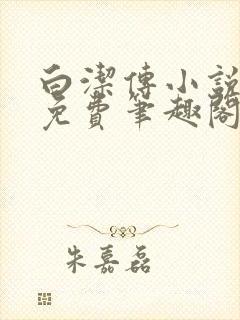 白潔傳小説
免費筆趣閣
朱嘉磊